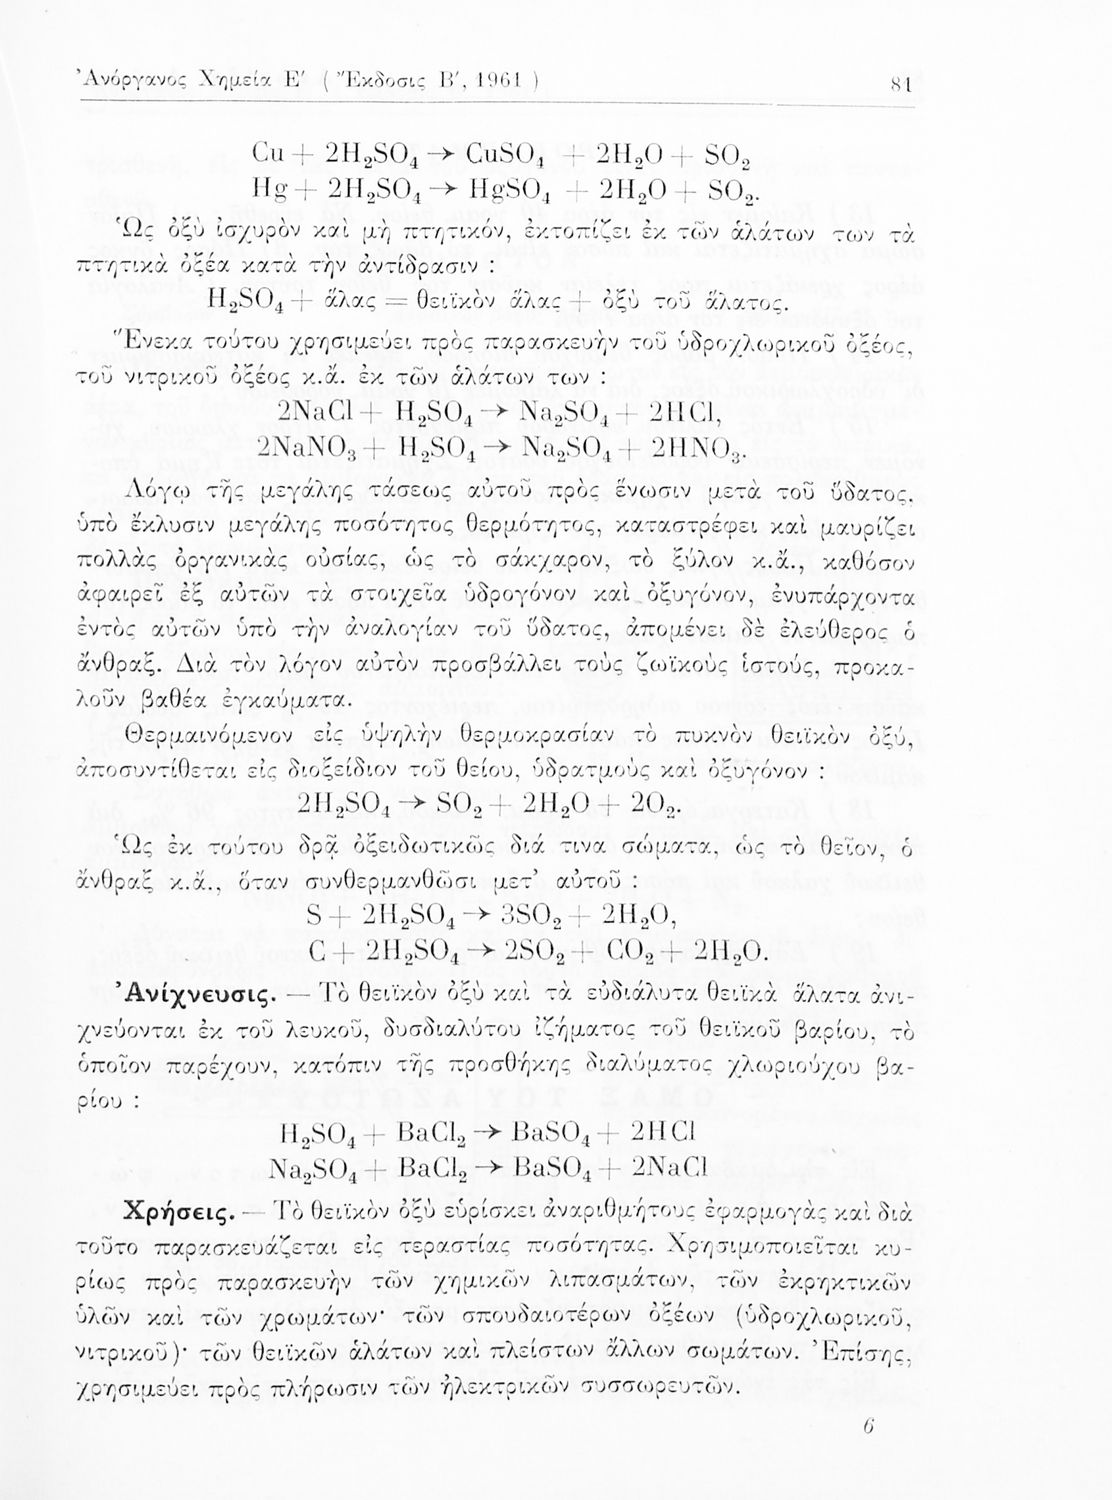 Ἀνόργανος Χημεία Ε′ ( Ἔκδοσις Β′, 1961 ) 81
Cu + 2H₂SO₄ → CuSO₄ + 2H₂O + SO₂
Hg + 2H₂SO₄ → HgSO₄ + 2H₂O + SO₂.
Ὡς ὀξὺ ἰσχυρὸν καὶ μὴ πτητικόν, ἐκτοπίζει ἐκ τῶν ἁλάτων των τὰ
πτητικὰ ὀξέα κατὰ τὴν ἀντίδρασιν :
H₂SO₄ + ἅλας = θειϊκὸν ἅλας + ὀξὺ τοῦ ἅλατος.
Ἕνεκα τούτου χρησιμεύει πρὸς παρασκευὴν τοῦ ὑδροχλωρικοῦ ὀξέος,
τοῦ νιτρικοῦ ὀξέος κ.ἄ. ἐκ τῶν ἁλάτων των :
2NaCl + H₂SO₄ → Na₂SO₄ + 2HCl,
2NaNO₃ + H₂SO₄ → Na₂SO₄ + 2HNO₃.
Λόγῳ τῆς μεγάλης τάσεως αὐτοῦ πρὸς ἕνωσιν μετὰ τοῦ ὕδατος,
ὑπὸ ἔκλυσιν μεγάλης ποσότητος θερμότητος, καταστρέφει καὶ μαυρίζει
πολλὰς ὀργανικὰς οὐσίας, ὡς τὸ σάκχαρον, τὸ ξύλον κ.ἄ., καθόσον
ἀφαιρεῖ ἐξ αὐτῶν τὰ στοιχεῖα ὑδρογόνον καὶ ὀξυγόνον, ἐνυπάρχοντα
ἐντὸς αὐτῶν ὑπὸ τὴν ἀναλογίαν τοῦ ὕδατος, ἀπομένει δὲ ἐλεύθερος ὁ
ἄνθραξ. Διὰ τὸν λόγον αὐτὸν προσβάλλει τοὺς ζωϊκοὺς ἱστούς, προκα-
λοῦν βαθέα ἐγκαύματα.
Θερμαινόμενον εἰς ὑψηλὴν θερμοκρασίαν τὸ πυκνὸν θειϊκὸν ὀξύ,
ἀποσυντίθεται εἰς διοξείδιον τοῦ θείου, ὑδρατμοὺς καὶ ὀξυγόνον :
2H₂SO₄ → SO₂ + 2H₂O + 2O₂.
Ὡς ἐκ τούτου δρᾷ ὀξειδωτικῶς διά τινα σώματα, ὡς τὸ θεῖον, ὁ
ἄνθραξ κ.ἄ., ὅταν συνθερμανθῶσι μετ’ αὐτοῦ :
S + 2H₂SO₄ → 3SO₂ + 2H₂O,
C + 2H₂SO₄ → 2SO₂ + CO₂ + 2H₂O.
Ἀνίχνευσις. — Τὸ θειϊκὸν ὀξὺ καὶ τὰ εὐδιάλυτα θειϊκὰ ἅλατα ἀνι-
χνεύονται ἐκ τοῦ λευκοῦ, δυσδιαλύτου ἰζήματος τοῦ θειϊκοῦ βαρίου, τὸ
ὁποῖον παρέχουν, κατόπιν τῆς προσθήκης διαλύματος χλωριούχου βα-
ρίου :
H₂SO₄ + BaCl₂ → BaSO₄ + 2HCl
Na₂SO₄ + BaCl₂ → BaSO₄ + 2NaCl
Χρήσεις. — Τὸ θειϊκὸν ὀξὺ εὑρίσκει ἀναριθμήτους ἐφαρμογὰς καὶ διὰ
τοῦτο παρασκευάζεται εἰς τεραστίας ποσότητας. Χρησιμοποιεῖται κυ-
ρίως πρὸς παρασκευὴν τῶν χημικῶν λιπασμάτων, τῶν ἐκρηκτικῶν
ὑλῶν καὶ τῶν χρωμάτων· τῶν σπουδαιοτέρων ὀξέων (ὑδροχλωρικοῦ,
νιτρικοῦ)· τῶν θειϊκῶν ἁλάτων καὶ πλείστων ἄλλων σωμάτων. Ἐπίσης,
χρησιμεύει πρὸς πλήρωσιν τῶν ἠλεκτρικῶν συσσωρευτῶν.
6